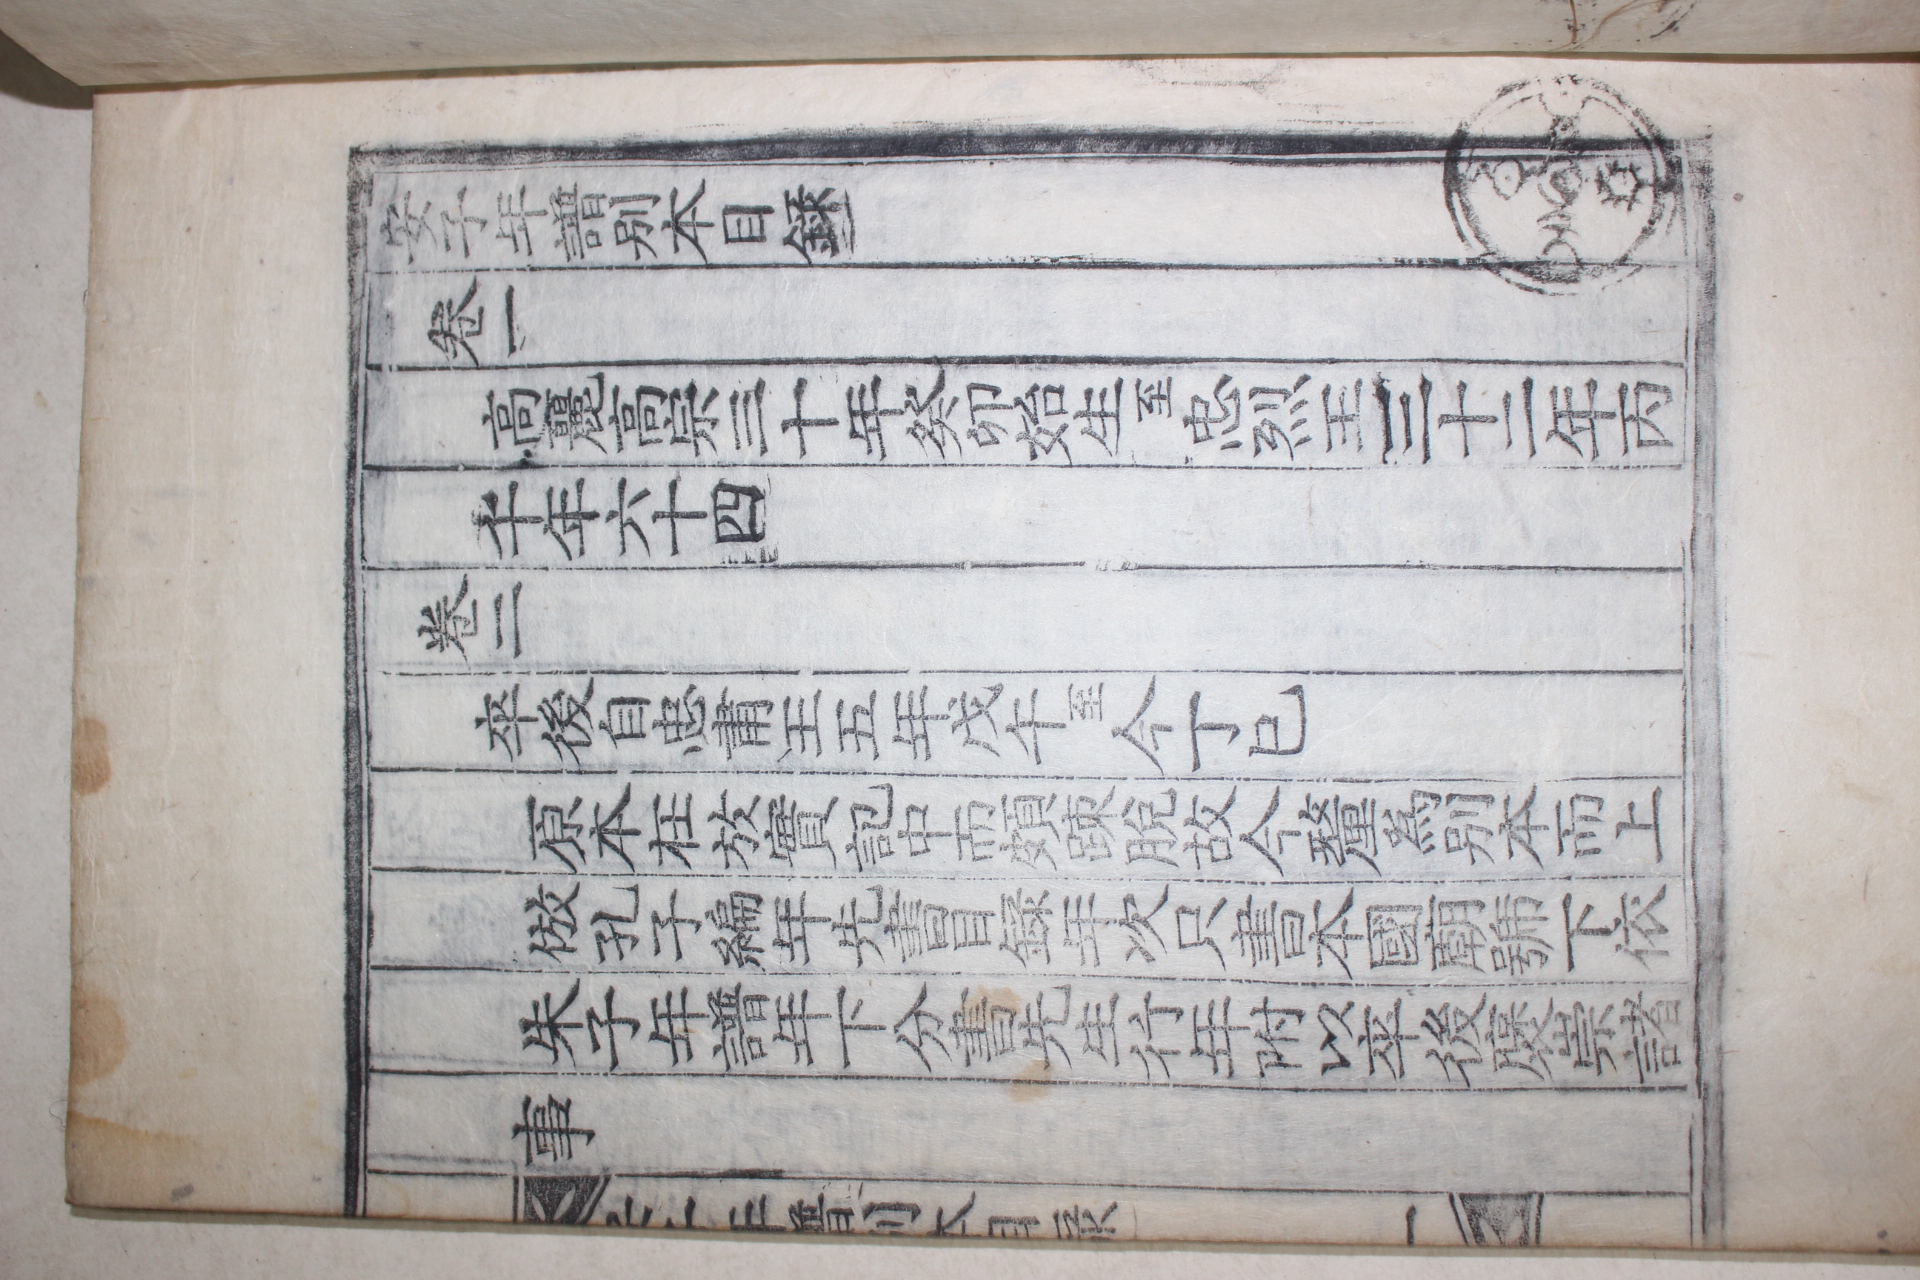 安子年譜別本目錄
卷一
高麗高宗三十年癸卯始生至忠烈王三十二年丙
午年六十四
卷二
卒後自忠肅王五年戊午至今丁巳
原本在於實記中而頗踈脫故今釐爲別本而上
倣孔子編年先書目錄年次只書本國廟號下依
朱子年譜年下分書先生行年附以卒後褒崇諸
事
安子年譜別本目錄 一